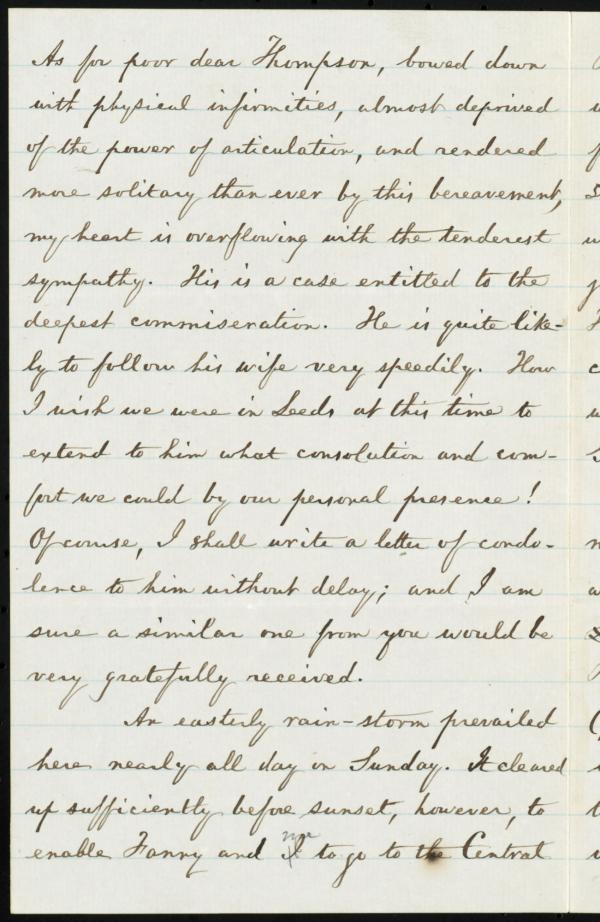 As for poor dear Thompson, bowed down
with physical infirmities, almost deprived
of the power of articulation, and rendered
more solitary than ever by this bereavement,
my heart is overflowing with the tenderest
sympathy. His is a case entitled to the
deepest commiseration. He is quite like-
ly to follow his wife very speedily. How
I wish we were in Leeds at this time to
extend to him what consolation and com-
fort we could by our personal presence!
Of course, I shall write a letter of condo-
lence to him without delay; and I am
sure a similar one from you would be
very gratefully received.
An easterly rain-storm prevailed
here nearly all day on Sunday. It cleared
up sufficiently before sunset, however, to
me
enable Fanny and I to go to the Central